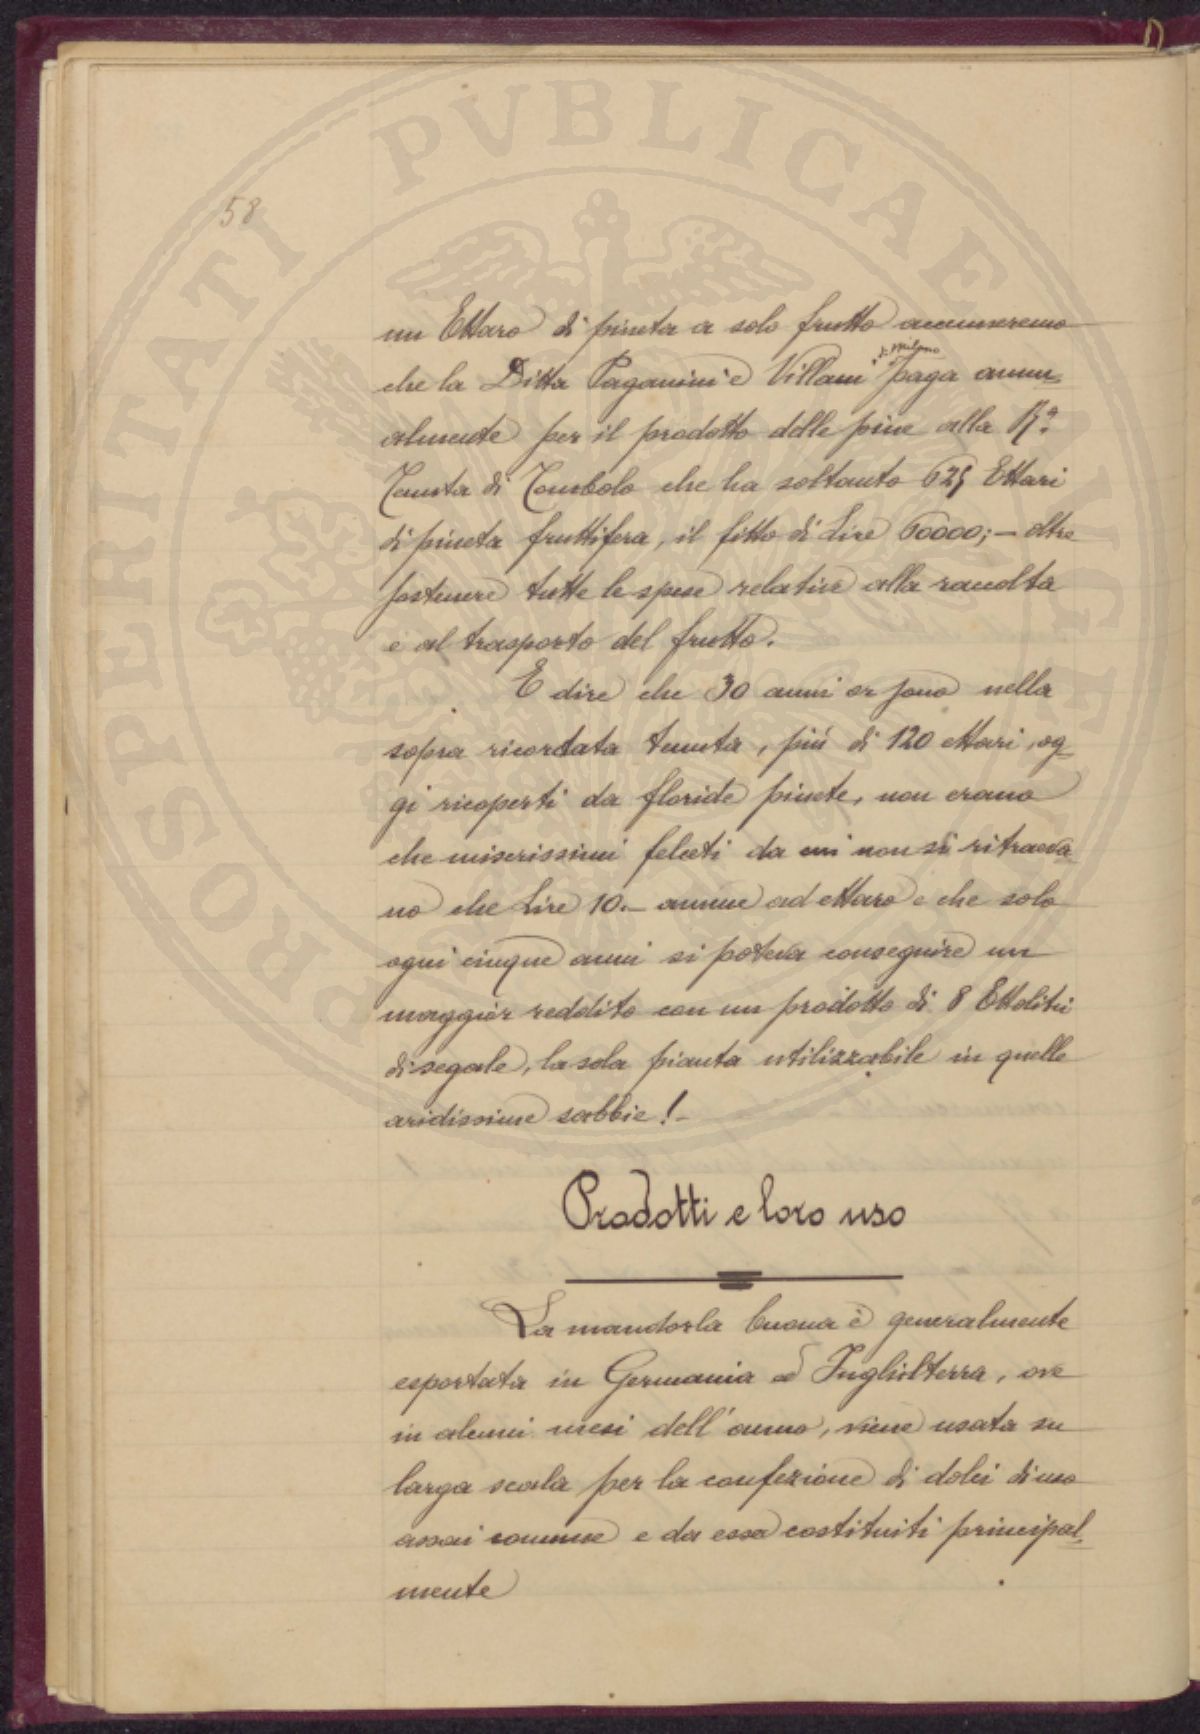 58
un Ettaro di pineta a solo frutto accenneremo
che la Ditta Paganini e Villani di Milano paga annu-
almente per il prodotto delle pine alla Rª.
Tenuta di Tombolo che ha soltanto 625 Ettari
di pineta fruttifera, il fitto di Lire 60000;— oltre
sostenere tutte le spese relative alla raccolta
e al trasporto del frutto.
E dire che 30 anni or sono nella
sopra ricordata tenuta, più di 120 ettari, og-
gi ricoperti da floride pinete, non erano
che miserissimi felceti da cui non si ritraeva
no che Lire 10.— annue ad ettaro e che solo
ogni cinque anni si poteva conseguire un
maggior reddito con un prodotto di 8 Ettolitri
di segale, la sola pianta utilizzabile in quelle
aridissime sabbie!—
Prodotti e loro uso
La mandorla buona è generalmente
esportata in Germania ed Inghilterra, ove
in alcuni mesi dell'anno, viene usata su
larga scala per la confezione di dolci di uso
assai comune e da essa costituiti principal-
mente
PROSPERITATI PVBLICAE